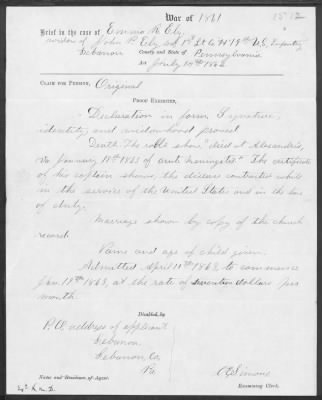 War of 1861
Brief in the case of Emma R. Ely,
widow of John P. Ely, 1st Lt Co. 18th U.S. Infantry
Lebanon County and State of Pennsylvania
July 14th 1862
CLAIM FOR PENSION, Original
PROOF EXHIBITED,
Declaration in form, Signature,
identity and widowhood proved
Death. The rolls show, "died at Alexandria,
Va. January 18th 1863 of acute meningitis." The certificate
of his captain shows, the disease contracted while
in the service of the United States and in the line
of duty.
Marriage shown by copy of the church
record.
Name and age of child given.
Admitted April 11th 1863, to commence
Jan. 18th 1863, at the rate of seventeen dollars per
month
Disabled by
P.O. address of applicant
Lebanon.
Lebanon Co.
Pa
Simons
Name and Residence of Agent.
Examining Clerk.